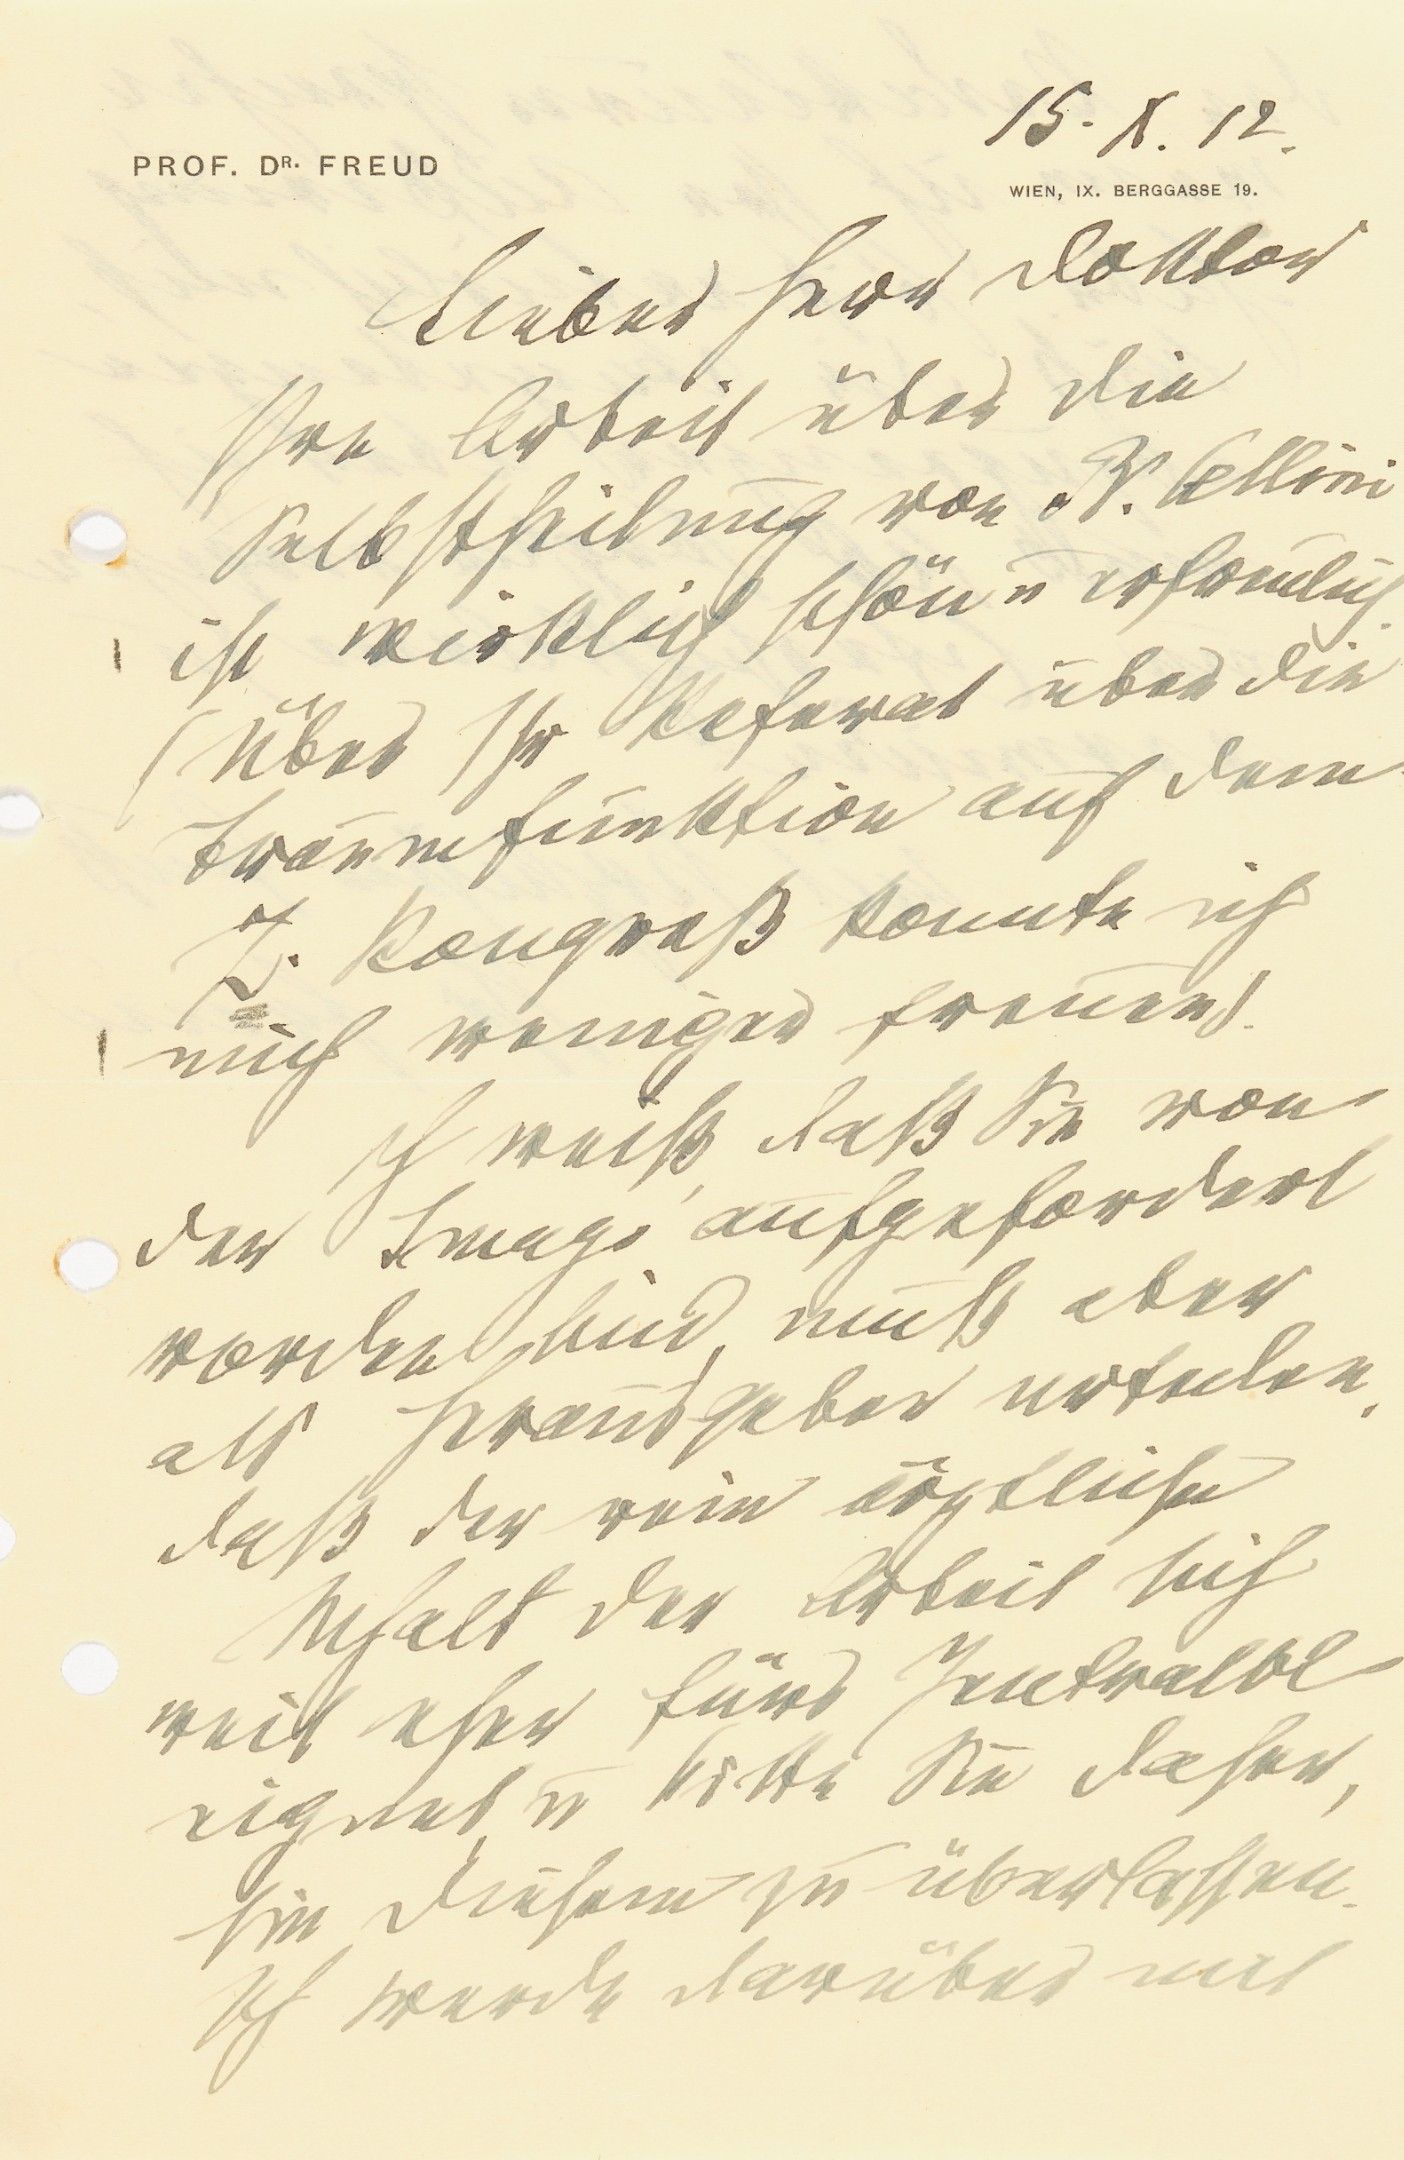 15. X. 12.
PROF. DR. FREUD
WIEN, IX. BERGGASSE 19.
Lieber Herr Doktor
Ihre Arbeit über die
Selbstheilung von B. Cellini
ist wirklich schön u erfreulich.
(Über Ihr Referat über die
Traumfunktion auf dem
Z. Kongreß konnte ich
mich weniger freuen).
Ich weiß, daß Sie von
der Imago aufgefordert
worden sind, muß aber
als Herausgeber urteilen,
daß der rein ärztliche
Inhalt der Arbeit sich
weit eher fürs Zentralbl
eignet, u bitte Sie daher,
sie diesem zu überlassen.
Ich werde darüber mit